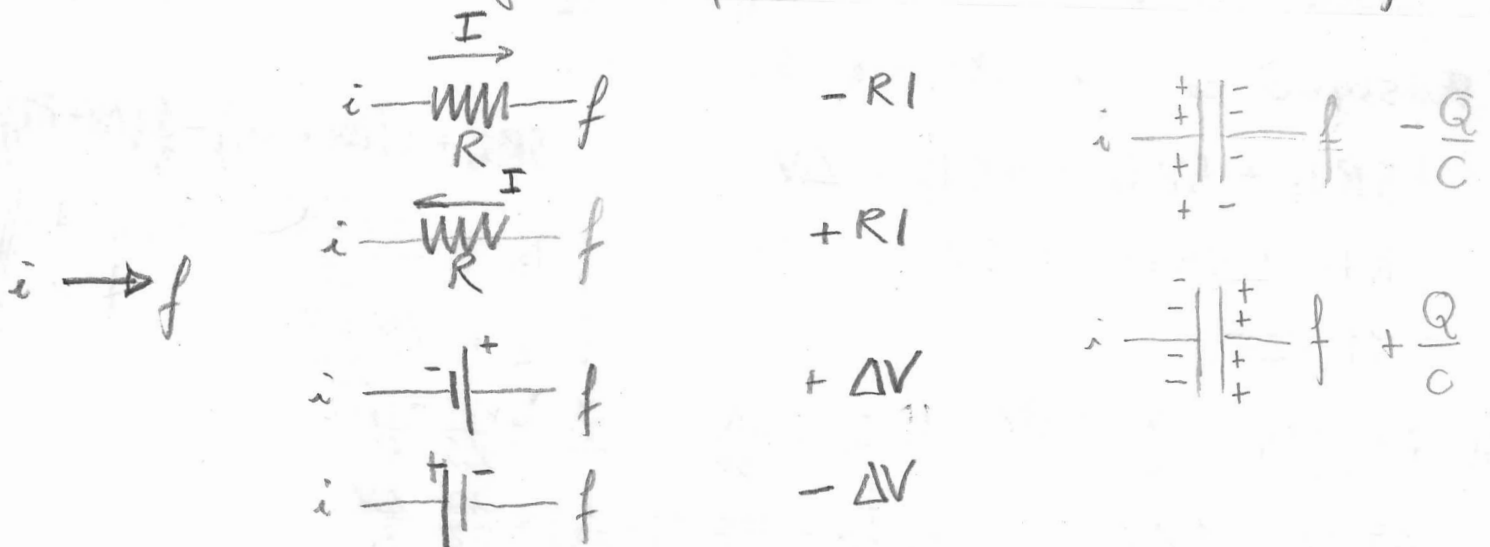 I
i f - RI
R
I
i f + RI
R
i → f
- +
i f + ΔV
+ -
i f - ΔV
+ -
+ -
i f - Q/C
+ -
+ -
- +
- +
i f + Q/C
- +
- +